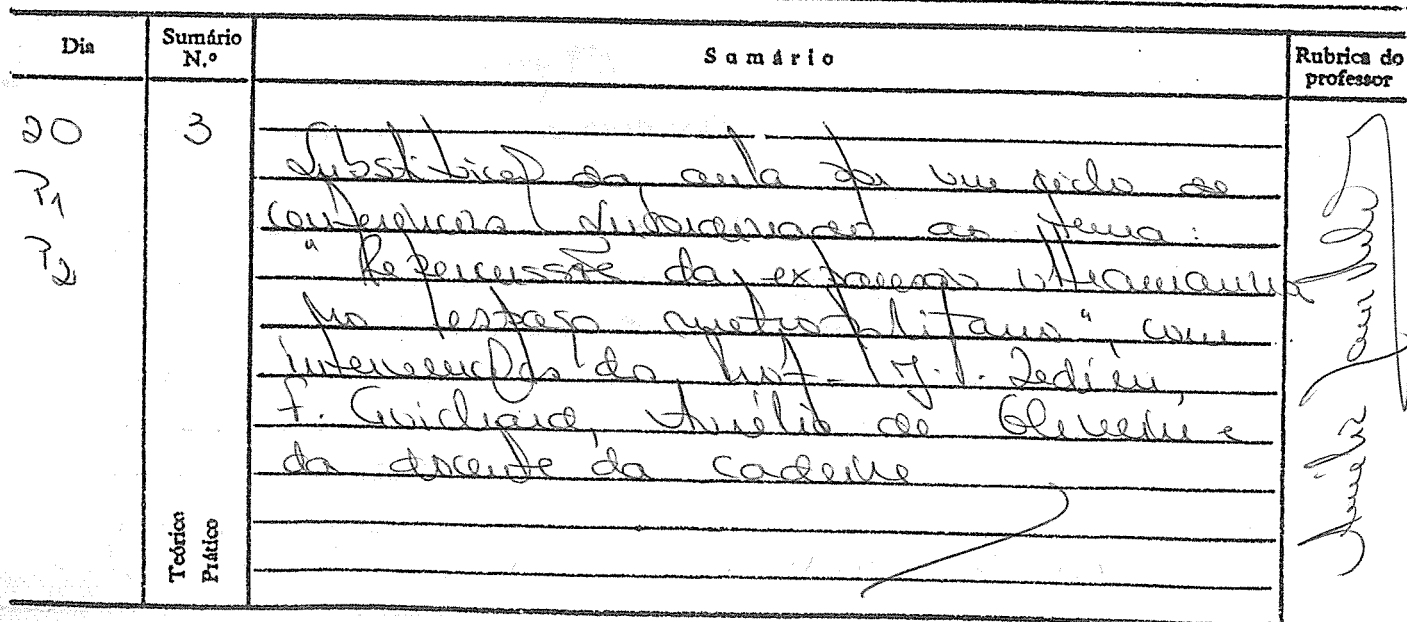 Dia
Sumário N.º
Sumário
Rubrica do professor
20
P1
P2
3
Substituição da aula por um ciclo de
conferências subordinado ao tema:
"Repercussões da expansão ultramarina
no espaço metropolitano", com
intervenções do Prof. F. Guichard, Aurélio de Oliveira e
da docente da cadeira
Teórico
Prático
Amélia